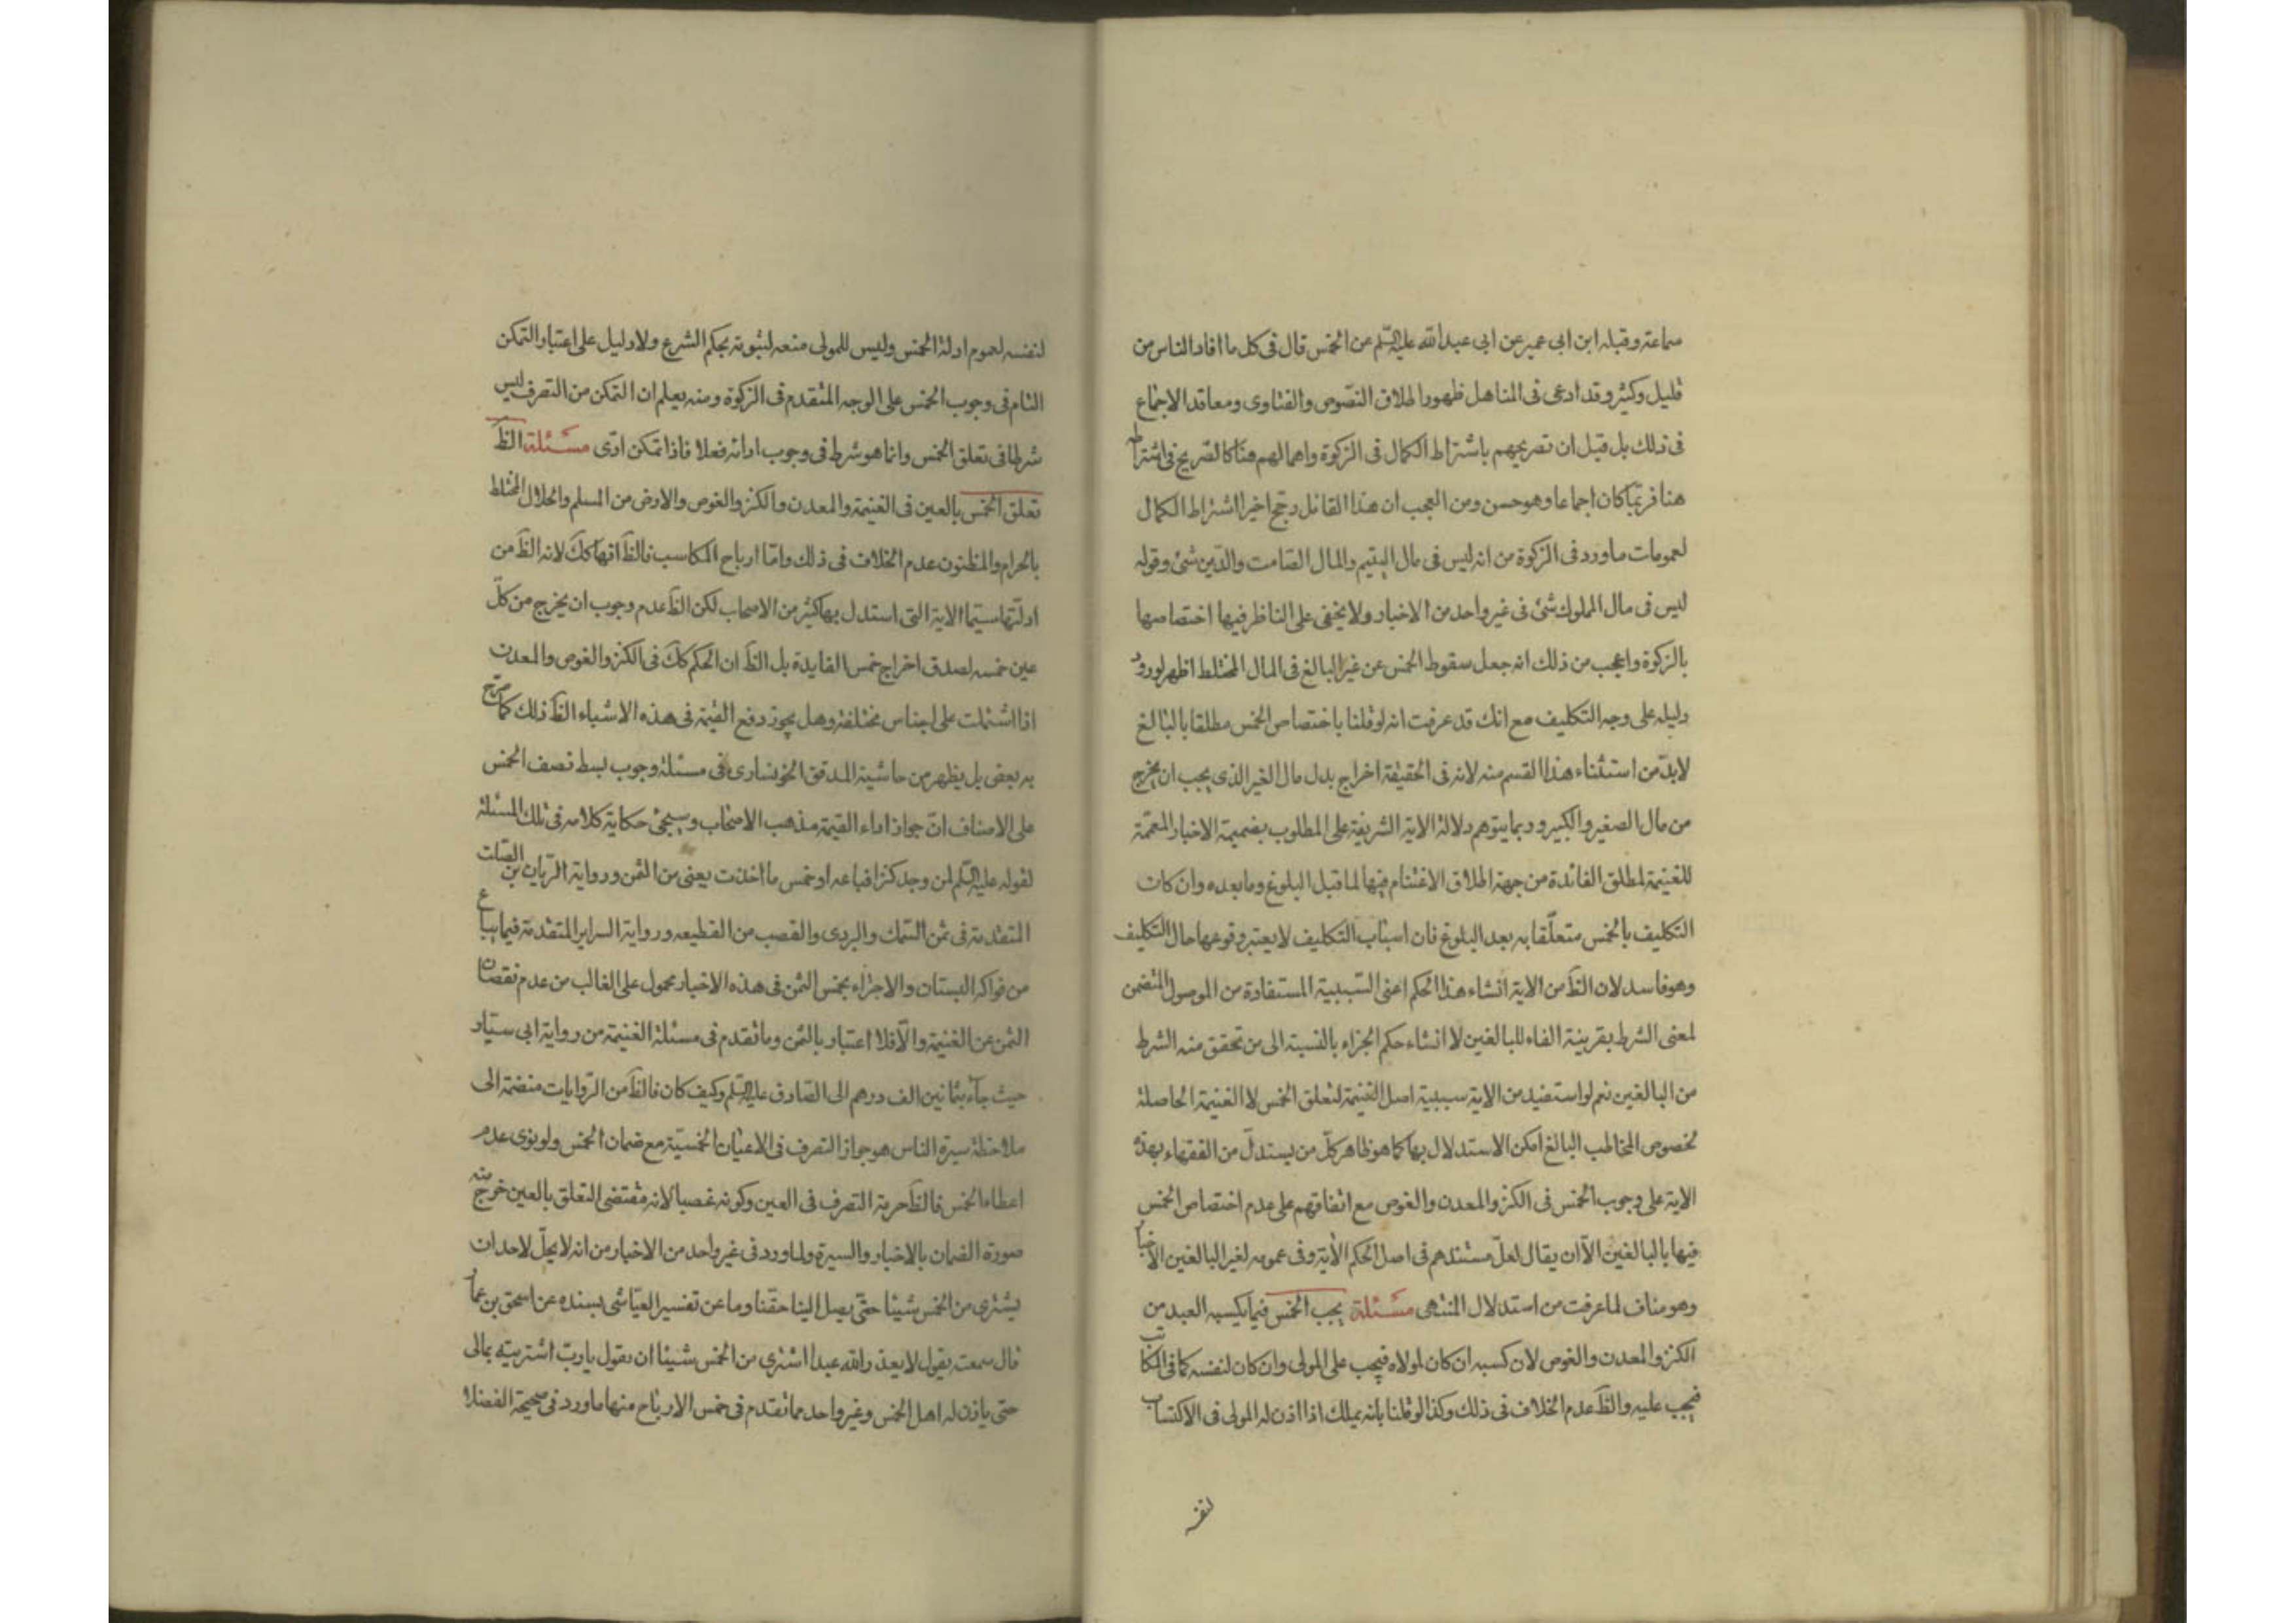 سماعة وقبله ابن ابي عمير عن ابي عبد الله عليه السّلم عن الخمس قال فى كل ما افاد الناس من
قليل وكثير وقد ادعى فى المناهل ظهور اطلاق النصّوص والفتاوى ومعاقد الاجماع
فى ذلك بل قيل ان تصريحهم باشتراط الكمال فى الزكوة واهمالهم هنا كالصّريح فى اشتراطه
هنا فربّما كان اجماعا وهو حسن ومن العجب ان هذا القائل رجّح اخيرا اشتراط الكمال
لعمومات ما ورد فى الزكوة من انه ليس فى مال اليتيم والمال الصّامت والدّين شئ وقوله
ليس فى مال المملوك شئ فى غير واحد من الاخبار ولا يخفى على الناظر فيها اختصاصها
بالزكوة واعجب من ذلك انه جعل سقوط الخمس عن غير البالغ فى المال المختلط اظهر لورود
دليله على وجه التكليف مع انك قد عرفت انه لو قلنا باختصاص الخمس مطلقا بالبالغ
لابدّ من استثناء هذا القسم منه لانه فى الحقيقة اخراج بدل مال الغير الذى يجب ان يخرج
من مال الصغير والكبير وربما يتوهم دلالة الاية الشريفة على المطلوب بضميمة الاخبار المعمّمة
للغنيمة لمطلق الفائدة من جهة اطلاق الاغتنام فيها لما قبل البلوغ وما بعده وان كان
التكليف بالخمس متعلّقا به بعد البلوغ فان اسباب التكليف لا يعتبر وقوعها حال التكليف
وهو فاسد لان الظَ من الاية انشاء هذا الحكم اعنى السّببية المستفادة من الموصول المتضمن
لمعنى الشرط بقرينة الفاء للبالغين لا انشاء حكم الجزاء بالنسبة الى من تحقق منه الشرط
من البالغين نعم لو استفيد من الاية سببية اصل الغنيمة لتعلق الخمس لا الغنيمة الحاصلة
لخصوص المخاطب البالغ امكن الاستدلال بها كما هو ظاهر كلّ من يستدلّ من الفقهاء بهذه
الاية على وجوب الخمس فى الكنز والمعدن والغوص مع اتفاقهم على عدم اختصاص الخمس
فيها بالبالغين الّا ان يقال لعلّ مستندهم فى اصل الحكم الاية وفى عمومه لغير البالغين الاخبار
وهو مناف لما عرفت من استدلال المنتهى مسئلة يجب الخمس فيما يكسبه العبد من
الكنز والمعدن والغوص لان كسبه ان كان لمولاه فيجب على المولى وان كان لنفسه كما فى المكاتب
فيجب عليه والظَ عدم الخلاف فى ذلك وكذا لو قلنا بانه يملك اذا اذن له المولى فى الاكتساب
لنفسه
لنفسه لعموم ادلة الخمس وليس للمولى منعه لثبوته بحكم الشرع ولا دليل على اعتبار التمكن
التام فى وجوب الخمس على الوجه المتقدم فى الزكوة ومنه يعلم ان التمكن من التصرف ليس
شرطا فى تعلق الخمس وانما هو شرط فى وجوب ادائه فعلا فاذا تمكن ادّى مسئلة الظَ
تعلق الخمس بالعين فى الغنيمة والمعدن والكنز والغوص والارض من المسلم والحلال المختلط
بالحرام والمظنون عدم الخلاف فى ذلك وامّا ارباح المكاسب فالظَ انها كك لانه الظَ من
ادلّتها سيّما الاية التى استدل بها كثير من الاصحاب لكن الظَ عدم وجوب ان يخرج من كلّ
عين خمسه لصدق اخراج خمس الفايدة بل الظَ ان الحكم كك فى الكنز والغوص والمعدن
اذا اشتملت على اجناس مختلفة وهل يجوز دفع القيمة فى هذه الاشياء الظَ ذلك كما صرّح
به بعض بل يظهر من حاشية المدقق الخونسارى فى مسئلة وجوب بسط نصف الخمس
على الاصناف انّ جواز اداء القيمة مذهب الاصحاب وسيجئ حكاية كلامه فى تلك المسئلة
لقوله عليه السّلم لمن وجد كنزا فباعه اد خمس ما اخذت يعنى من الثمن ورواية الرّيان بن الصّلت
المتقدمة فى ثمن السّمك والبردى والقصب من القطيعه ورواية السراير المتقدمة فيما يباع
من فواكه البستان والاجزاء بخمس الثمن فى هذه الاخبار محمول على الغالب من عدم نقصان
الثمن عن الغنيمة والّا فلا اعتبار بالثمن وما تقدم فى مسئلة الغنيمة من رواية ابى سيّار
حيث جاء بثمانين الف درهم الى الصّادق عليه السّلم وكيف كان فالظَ من الرّوايات منضمة الى
ملاحظة سيرة الناس هو جواز التصرف فى الاعيان الخمسيّة مع ضمان الخمس ولو نوى عدم
اعطاء الخمس فالظَ حرمة التصرف فى العين وكونه غصبا لانه مقتضى التعلق بالعين خرج منه
صورة الضمان بالاخبار والسيرة ولما ورد فى غير واحد من الاخبار من انه لا يحلّ لاحد ان
يشترى من الخمس شيئا حتّى يصل الينا حقّنا وما عن تفسير العيّاشى بسنده عن اسحق بن عمار
قال سمعته يقول لا يعذر الله عبدا اشترى من الخمس شيئا ان يقول يا ربّ اشتريته بمالى
حتى ياذن له اهل الخمس وغير واحد مما تقدم فى خمس الارباح منها ما ورد فى صحيحة الفضلاء